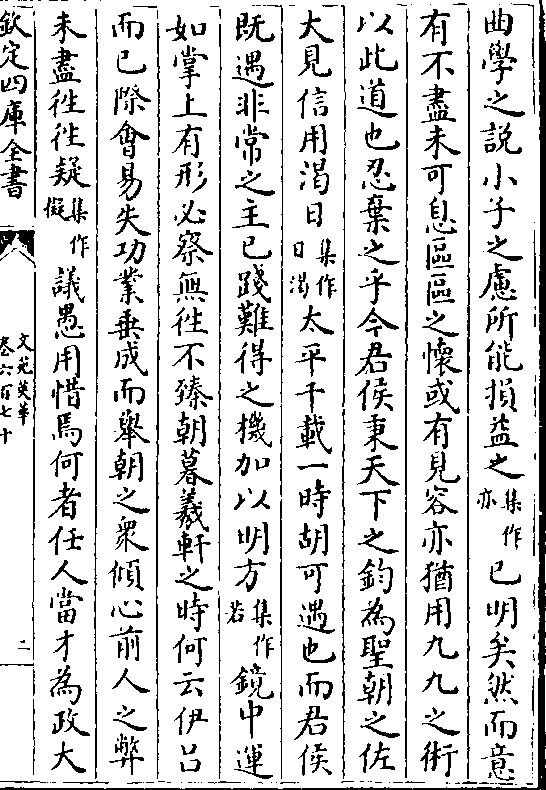 曲學之說小子之慮所能損益之集作亦已明矣然而意
有不盡未可息區區之懷或有見容亦猶用九九之術
以此道也忍棄之乎今君侯秉天下之鈞為聖朝之佐
大見信用渴日集作日渴太平千載一時胡可遇也而君侯
既遇非常之主已踐難得之機加以明方集作若鏡中運
如掌上有形必察無徃不臻朝暮羲軒之時何云伊吕
而已際會易失功業垂成而舉朝之衆傾心前人之弊
未盡徃徃疑集作擬議愚用惜焉何者任人當才為政大
欽定四庫全書
文苑英華
卷六百七十
二